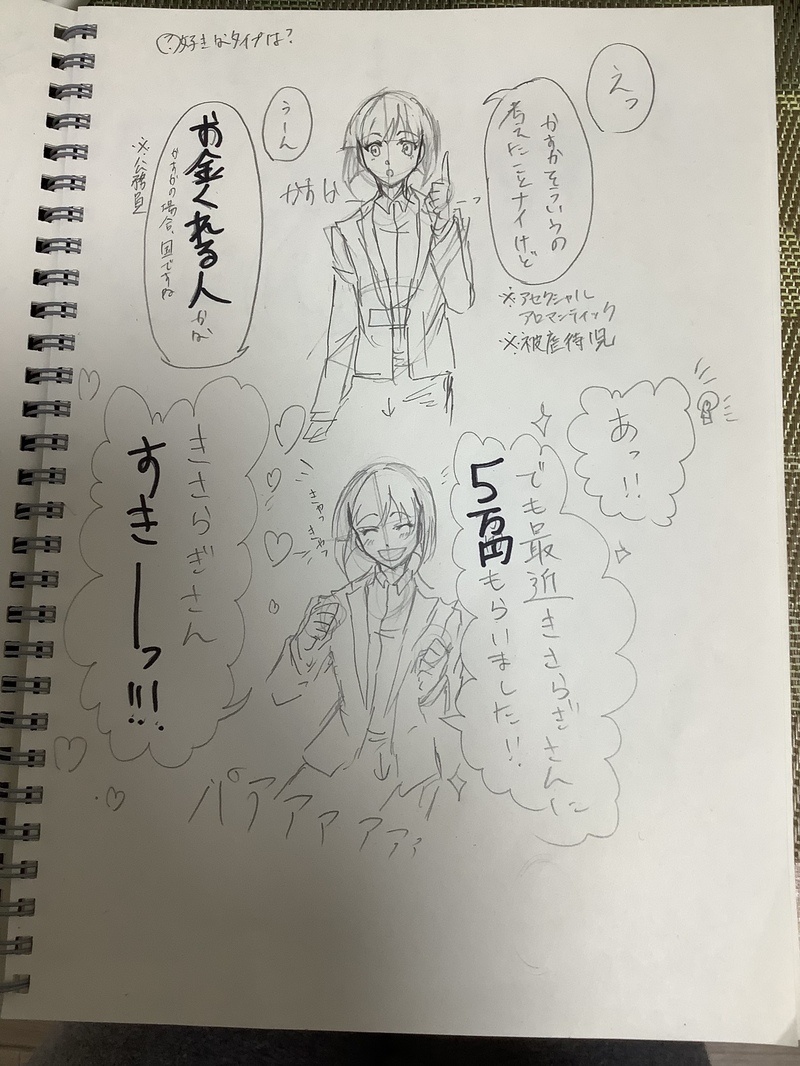 ?好きなタイプは?
えっ
かすかそういうの
考えたことナイけど
※アセクシャル
アロマンティック
※被虐待児
かすか
うーん
お金くれる人かな
かすかの場合、国ですね
※公務員
あっ!!
でも最近きさらぎさんに
5万円もらいました!!
きゃっ
きゃっ
きさらぎさん
すきーっ!!!
パアアアアアア